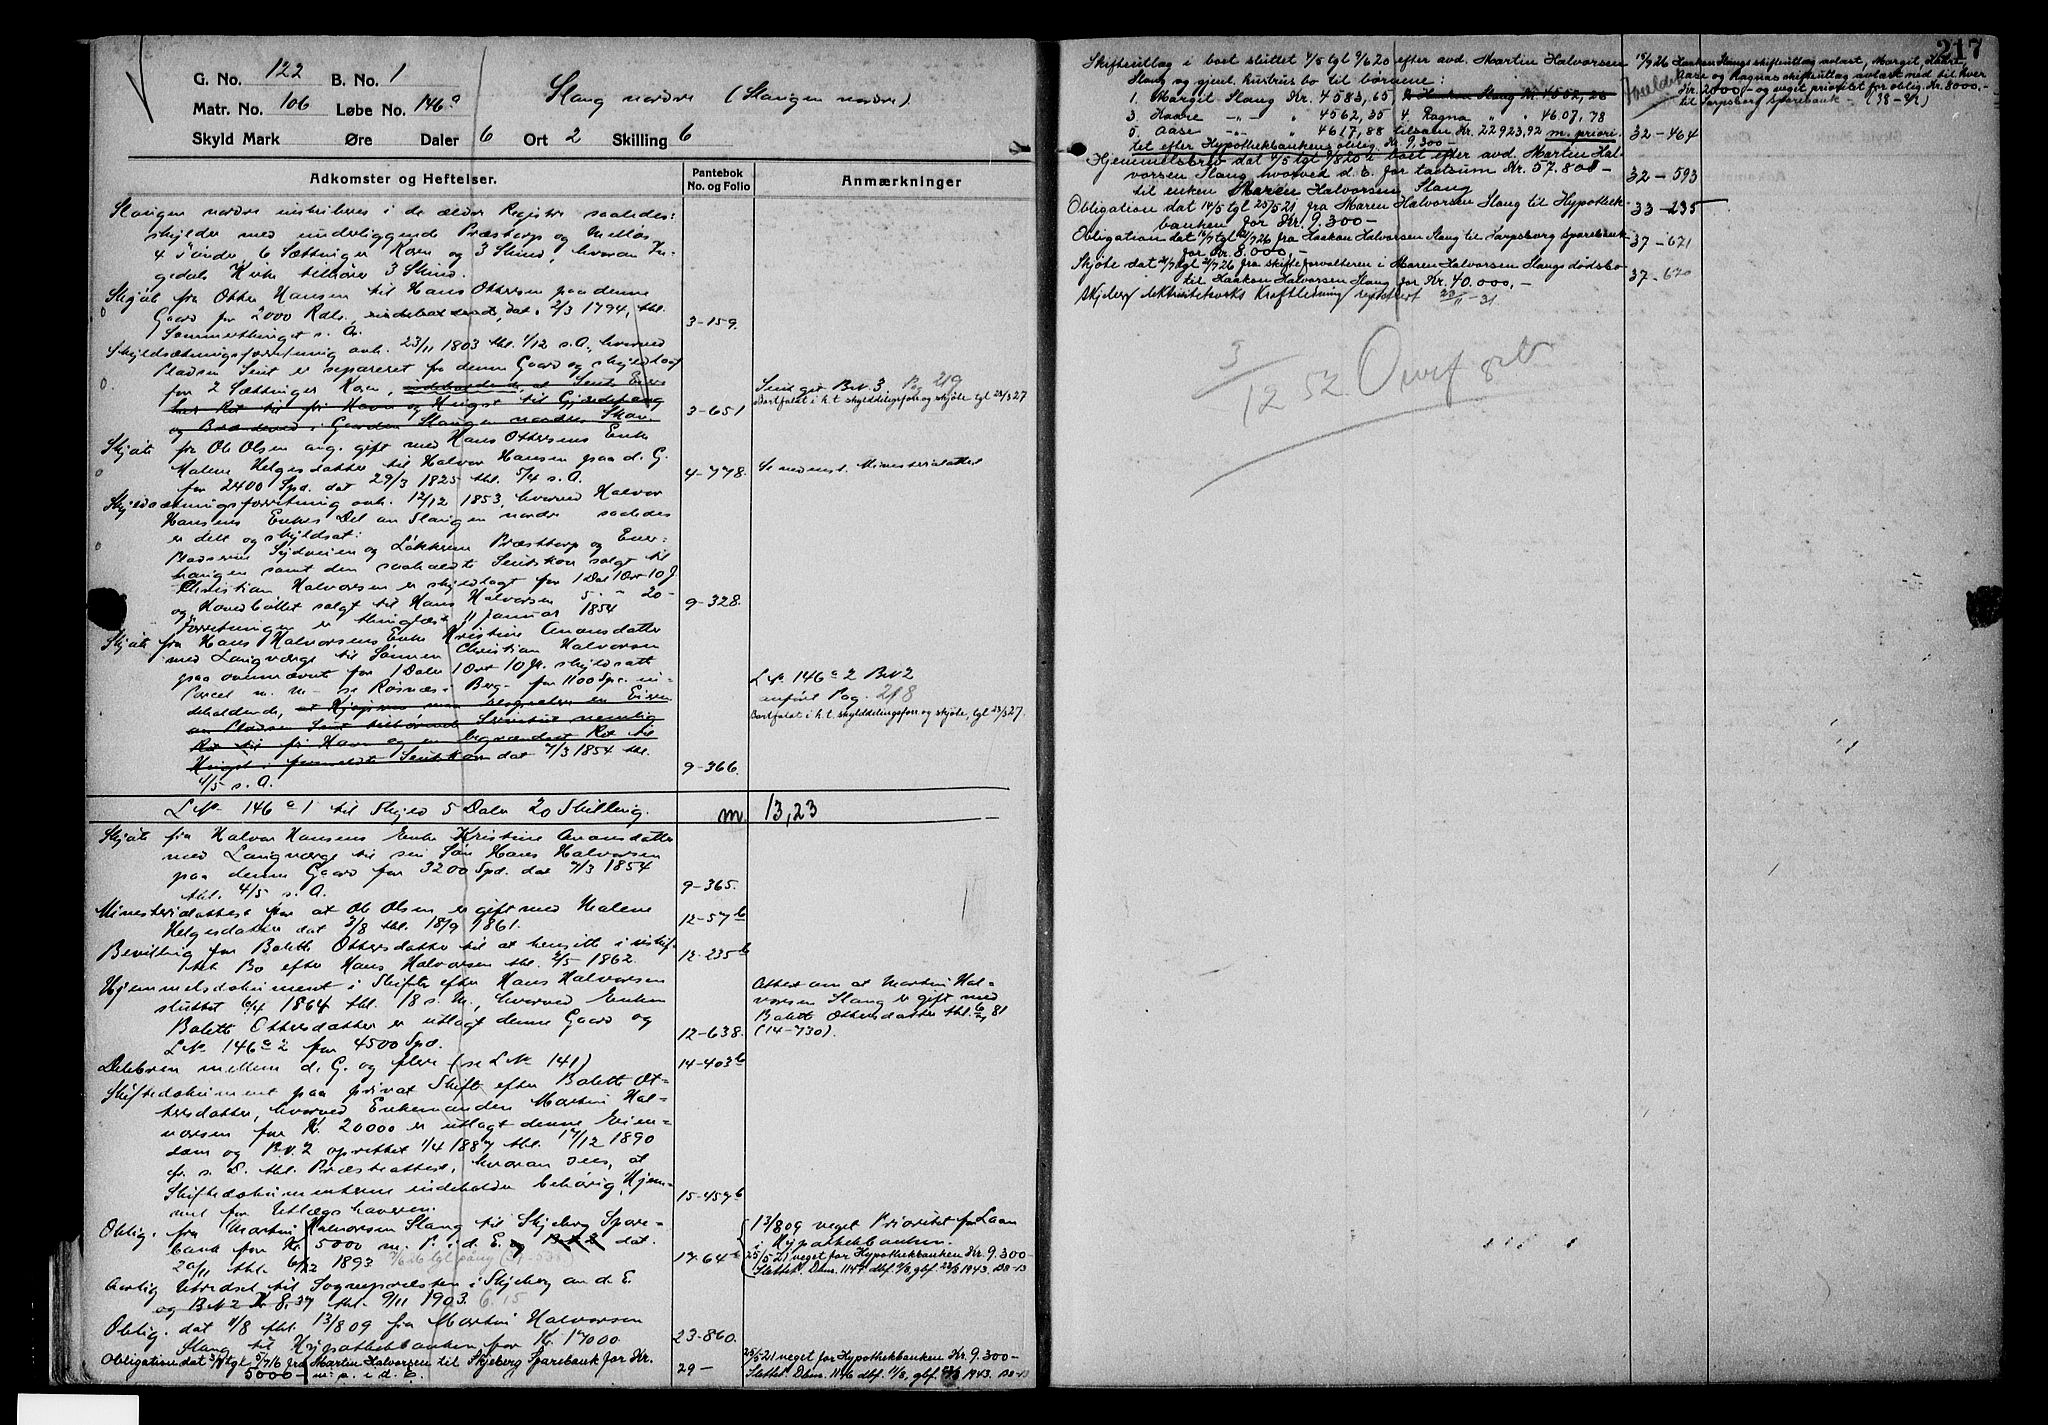 G. No. 122 B. No. 1
Slang nordre (Slangen nordre).
Matr. No. 106 Løbe No. 146a
Skyld Mark Øre Daler 6 Ort 2 Skilling 6
Adkomster og Heftelser.
Pantebok No. og Folio
Anmærkninger
Slangen nordre inskriberes i de ældre Registre saaledes:
skylder med underliggende Præstorp og Mellös
4 Tønder, 6 Sættinger Korn og 3 Skind, hvoraf In-
gedals Kirke tilhører 3 Skind.
Skjøte fra Otter Hansen til Hans Ottersen paa denne
Gaard for 2000 Rdlr. dat. 2/3 1794, tbl.
Sommerthinget s. A. 3-159.
Skyldsætningsforretning avh. 23/11 1803 tbl. 1/12 s. A., hvorved
Pladsen Sent er separeret fra denne Gaard og skyldlagt
for 2 Sættinger Korn, indeholdende, at Sents Eiere
har Ret til fri Havn og Hugst til Gjærdefang
og Brændeved i Gaarden Slangen nordres Skov. 3-651
Sent get B.N. 3. Pag 219
Bortfaldt i h. t. skylddelingsforr og skjøte tgl 23/3 27
Skjøte fra Ole Olsen ang. gift med Hans Ottersens Enke
Malene Helgesdatter til Halvor Hansen paa d. G.
for 2400 Spd. dat 29/3 1825 tbl. 5/4 s. A. 4-778.
Se nedenst. Ministerialattest
Skyldsætningsforretning avh. 12/12 1853, hvorved Halvor
Hansens Enkes Del av Slangen nordre saaledes
er delt og skyldsat:
Pladserne Sydveien og Løkkerne Præsttorp og Ener-
haugen samt den saakaldte Sentskov solgt til
Christian Halvorsen er skyldlagt for 1 Dal 1 Ort 10 f
og Hovedbøllet solgt til Hans Halvorsen 5 - " 20 -
Forretningen er thinglæst 11 Januar 1854 9-328.
Skjøte fra Hans Halvorsens Enke Kristine Anonsdatter
med Laugværge til Sønnen Christian Halvorsen
paa ovennævnt for 1 Daler 1 Ort 10 f. skyldsatt
Parcel m. m - se Røsnæs i Berg - for 1100 Spd. in-
deholdende, at Kjøperen maa respektere en Eieren
av Pladsen Sent tilhørende Servitut nemlig
Ret til fri Havn og en begrændset Ret til
Hugst i formeldte Sentskov dat 7/3 1854 tbl.
4/5 s. A. 9-366.
L.No 146a 2 BN 2
indført Pag. 218
Bortfaldt i h. t. skylddelingsforr og skjøte, tgl 23/3 27.
L.No 146a 1 til Skyld 5 Daler 20 Skilling. m. 13,23
Skjøte fra Halvor Hansens Enke Kristine Anonsdatter
med Laugværge til sin Søn Hans Halvorsen
paa denne Gaard for 3200 Spd. dat 7/3 1854
tbl. 4/5 s. A. 9-365.
Ministerialattest for at Ole Olsen er gift med Malene
Helgesdatter dat 3/8 tbl. 18/9 1861. 12-57b
Bevilling for Bolette Ottersdatter til at hensitte i uskif-
tet Bo efter Hans Halvorsen tbl. 2/5 1862. 12-235b
Hjemmelsdokument i Skiftet efter Hans Halvorsen
sluttet 6/4 1864 tbl. 18 s. M., hvorved Enken
Bolette Ottersdatter er utlagt denne Gaard og
L.No 146a 2 for 4500 Spd. 12-638.
Attest om at Martin Hal-
vorsen Slang er gift med
Bolette Ottersdatter tbl. 81
(14-730).
Delebrev mellem d. G. og flere (se L.No 141) 14-403b
Skiftedokument paa privat Skifte efter Bolette Ot-
tersdatter, hvorved Enkemanden Martin Hal-
vorsen for Kr. 20000 er utlagt denne Eien-
dom og B.N. 2 oprettet 1/4 1887 tbl. 17/12 1890
fr. s. D. tbl. Præsteattest, hvorav sees, at
Skiftedokumenterne indeholder behørig Hjem-
mel for Utlægshaveren. 15-457b
Oblig. fra Martin Halvorsen Slang til Skjeberg Spare-
bank for Kr. 5000 m. P. i d. E. og B.N.2 dat.
20/11 tbl. 6/12 1893 17-64a
13/8 09 veget Prioritet for Laan
i Hypothekbanken.
25/5 21 veget for Hypothekbanken Kr. 9.300-
Slettet. Dbnr. 1147 dbf. 9/8, gbf. 23/8 1943. BB-13
Aarlig Utredsel til Sognepresten i Skjeberg av d. E.
og BN 2 Kr 8,37 tbl. 9/11 1903. 6.15
Oblig. dat 11/8 tbl. 13/8 09 fra Martin Halvorsen
Slang til Hypothekbanken for K. 17000 23-860.
Obligation dat 3/7 tgl 5/7 16 fra Martin Halvorsen til Skjeberg Sparebank for Kr.
5000- m. p. i d. E. 29 -
25/5 21 veget for Hypothekbanken Kr. 9.300-
Slettet. Dbnr. 1146 dbf. 11/8, gbf. 23/8 1943. BB-13
217
Skifteutlag i boet sluttet 4/5 tgl 9/6 20 efter avd. Martin Halvorsen
Slang og gjenl. hustrus bo til børnene:
1. Margit Slang Kr. 4583,65 2 Haakon Slang Kr. 4552,26
3. Haare -"- " 4562,35 4. Ragna " " 4607,78
5. Aase -"- " 4617,88 tilsam. Kr. 22923,92 m. priori-
tet efter Hypothekbankens oblig. Kr. 9.300- 32-464
15/9 26 Haakon Slangs skifteutlag avlæst, Margit, Haare,
Aase og Ragnas skifteutlag avlæst med til hver
Kr. 2000,- og veget prioritet for oblig. Kr. 8000.-
til Sarpsborg Sparebank -
Hjemmelsbrev dat 4/5 tgl 9/8 20 i boet efter avd. Martin Hal-
vorsen Slang hvorved d. E. for takstsum Kr. 57.800-
til enken Maren Halvorsen Slang 32-593
Obligation dat 14/5 tgl 25/5 21 fra Maren Halvorsen Slang til Hypothek-
banken for Kr. 9.300- 33-235
Obligation dat 12/7 tgl 21/7 26 fra Haakon Halvorsen Slang til Sarpsborg Sparebank
for Kr. 8.000,- 37-671
Skjøte dat 21/7 tgl 21/7 26 fra skifteforvalteren i Maren Halvorsen Slangs dødsbo
til Haakon Halvorsen Slang for Kr. 40.000,- 37-670
Skjeberg elektricitetsverks Kraftledning registrert 23/11-31
3/12 52 Overført